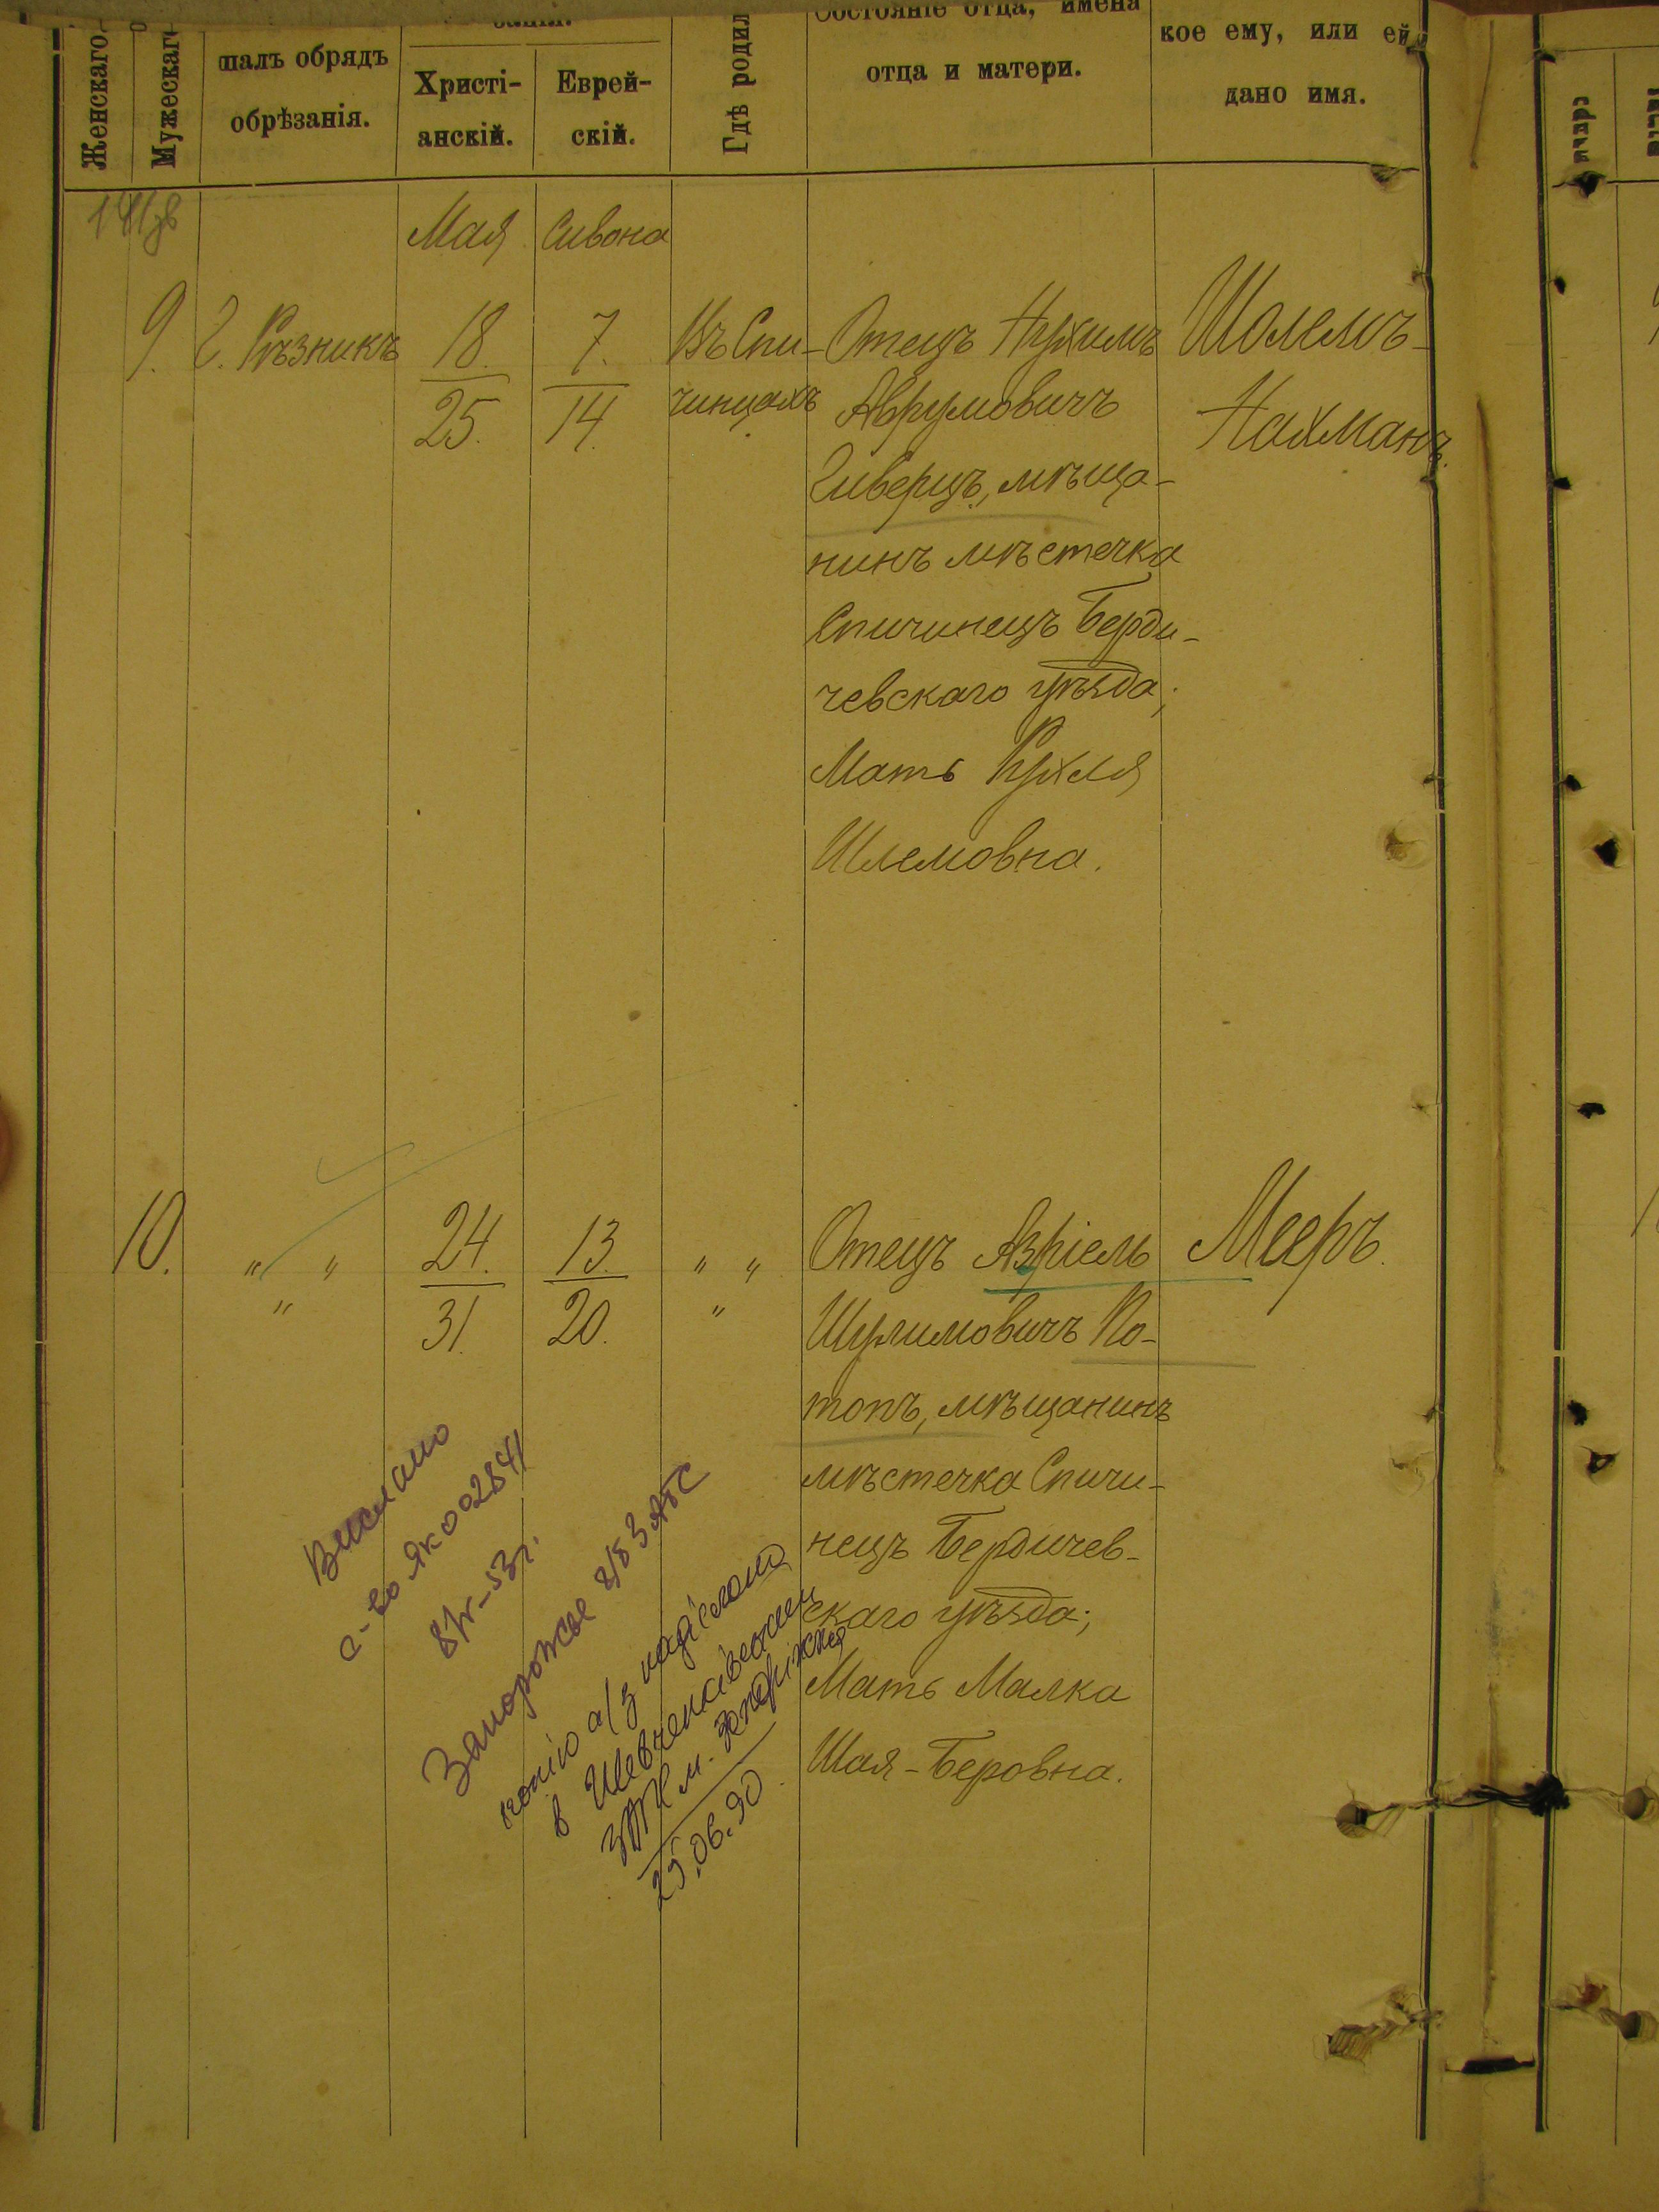 Женскаго.
Мужескаго
шалъ обрядъ
обрѣзанія.
занія.
Христі-
анскій.
Еврей-
скій.
Гдѣ родил
Состояніе отца, имена
отца и матери.
кое ему, или ей
дано имя.
Мая
Сивона
9.
Г. Рѣзникъ
18.
25.
7.
14.
Въ Спи-
чинцахъ
Отецъ Нухимъ
Аврумовичъ
Гиверцъ, мѣща-
нинъ мѣстечка
Спичинецъ Берди-
чевскаго уѣзда;
Мать Рухля
Шлемовна.
Шолемъ-
Нахманъ.
10.
" "
"
24.
31.
13.
20.
" "
"
Отецъ Азріель
Шулимовичъ По-
топъ, мѣщанинъ
мѣстечка Спичи-
нецъ Бердичев-
скаго уѣзда;
Мать Малка
Шая-Беровна.
Мееръ.
Выслано
с-во ЯК 002841
Запорожье
копію а/з надіслано
в Шевченківський
м. Запоріжжя
25.06.90